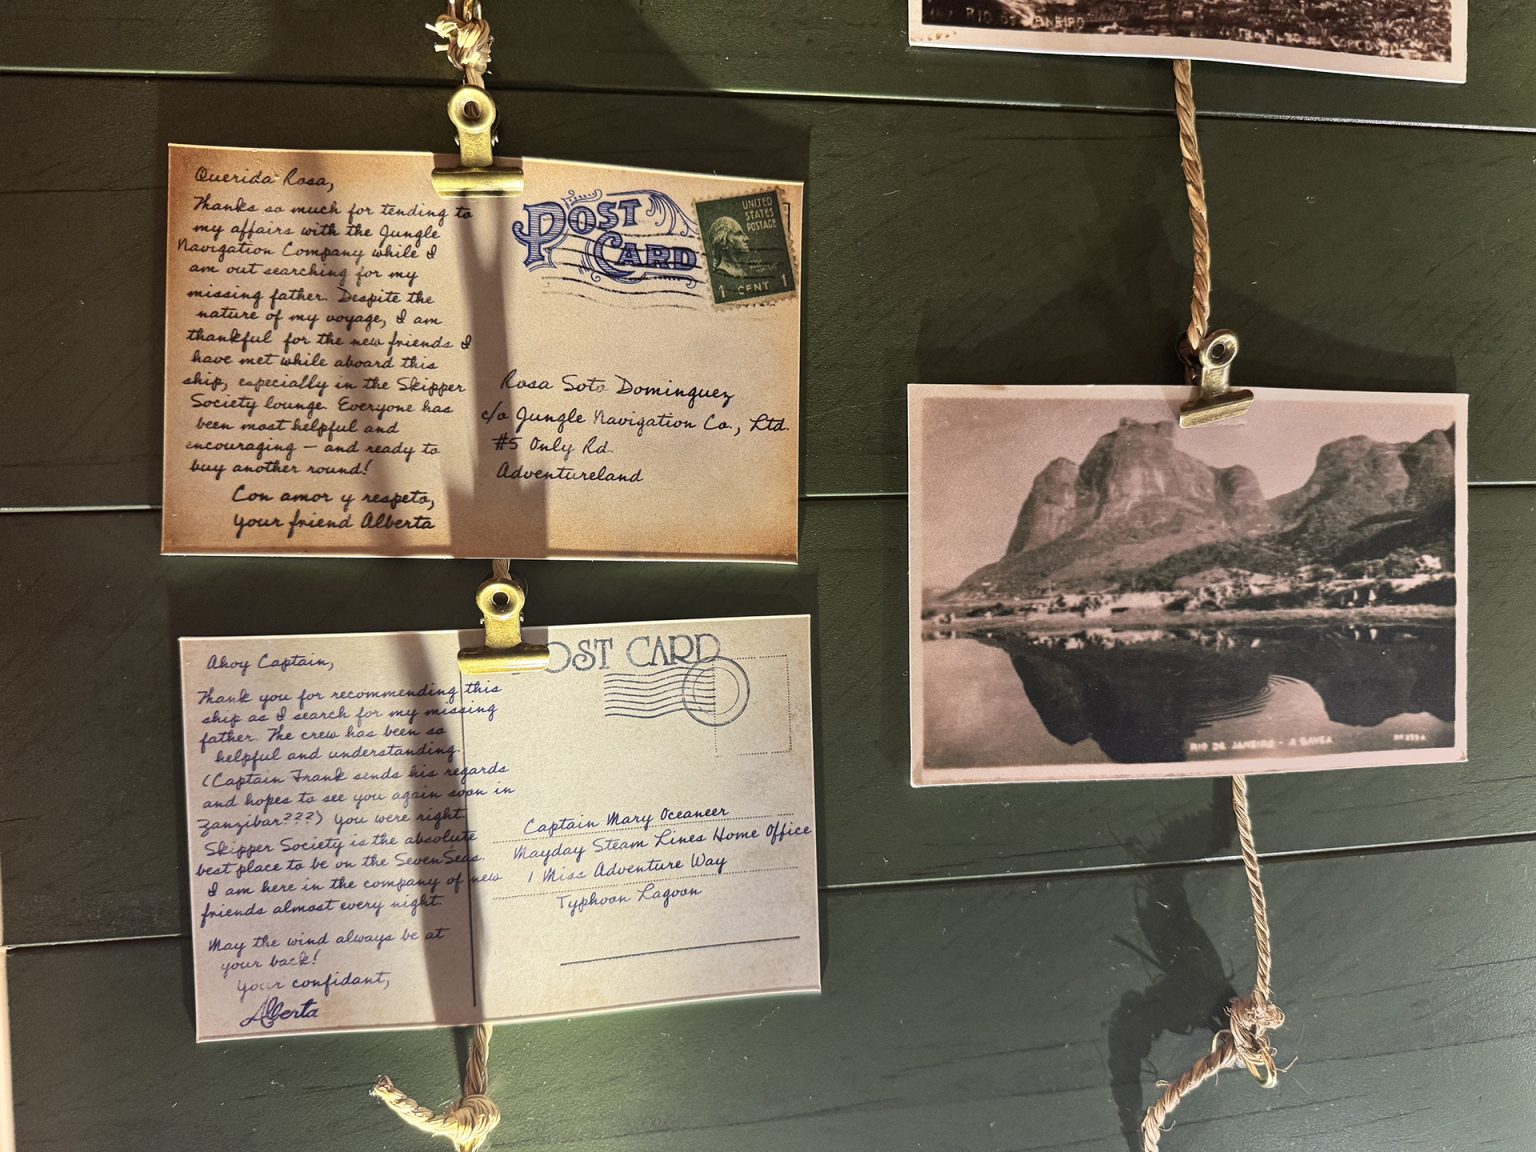 Querida Rosa,
Thanks so much for tending to
my affairs with the Jungle
Navigation Company while I
am out searching for my
missing father. Despite the
nature of my voyage, I am
thankful for the new friends I
have met while aboard this
ship, especially in the Skipper
Society lounge. Everyone has
been most helpful and
encouraging — and ready to
buy another round!
Con amor y respeto,
your friend Alberta
POST
CARD
UNITED
STATES
POSTAGE
1 CENT 1
Rosa Soto Dominguez
c/o Jungle Navigation Co., Ltd.
#5 Only Rd.
Adventureland
Ahoy Captain,
Thank you for recommending this
ship as I search for my missing
father. The crew has been so
helpful and understanding.
(Captain Frank sends his regards
and hopes to see you again soon in
Zanzibar???) You were right.
Skipper Society is the absolute
best place to be on the Seven Seas.
I am here in the company of new
friends almost every night.
May the wind always be at
your back!
Your confidant,
Alberta
OST CARD
Captain Mary Oceaneer
Mayday Steam Lines Home Office
1 Miss Adventure Way
Typhoon Lagoon
RIO DE JANEIRO
RIO DE JANEIRO - A GAVEA